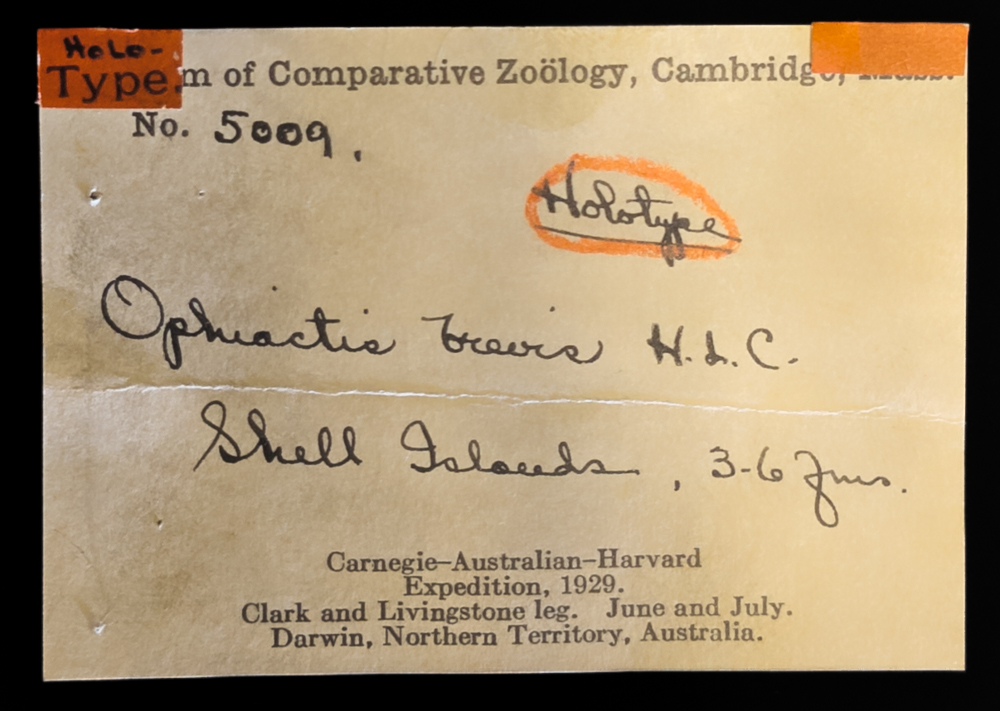 Holo-
Type m of Comparative Zoölogy, Cambridge, Mass.
No. 5009.
Holotype
Ophiactis brevis H.L.C.
Shell Islands, 3-6 fms.
Carnegie–Australian–Harvard
Expedition, 1929.
Clark and Livingstone leg. June and July.
Darwin, Northern Territory, Australia.